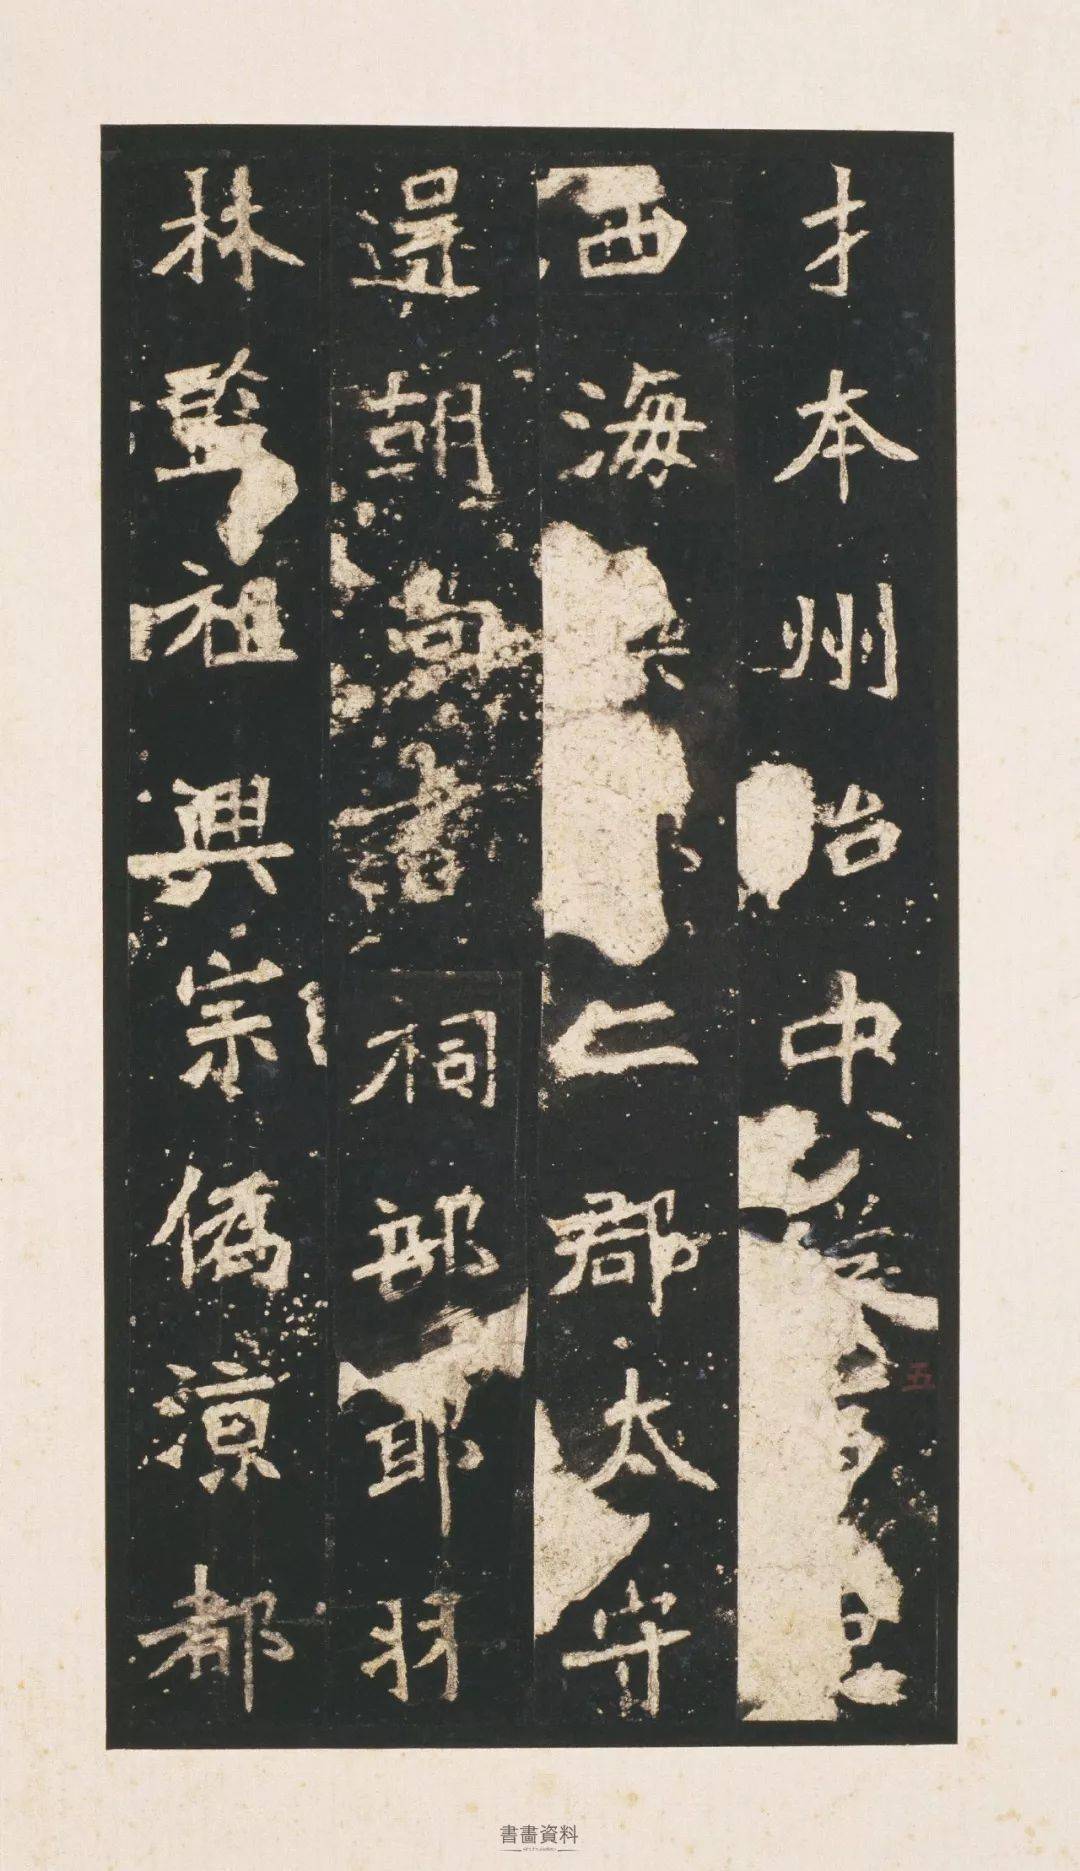 才本州治中
西海二郡太守
還朝尚書祠部郎羽
林監祖興宗僞涼都
五
書畫資料